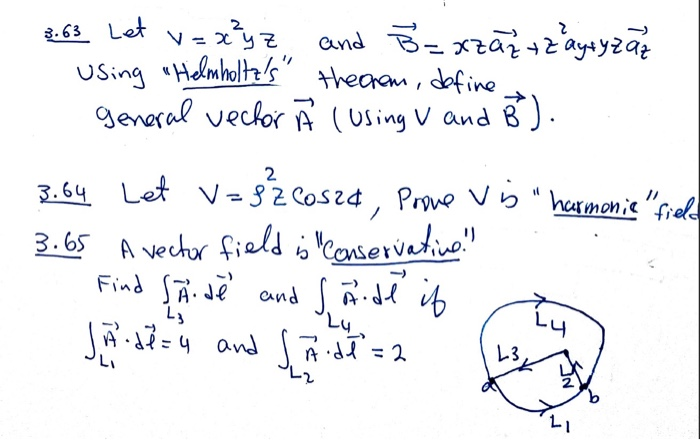 3.63 Let V = x²yz and B⃗ = xz a⃗z + z² a⃗y + yz a⃗z
Using "Helmholtz's" theorem, define
general vector A⃗ (Using V and B⃗).
3.64 Let V = ρ²z Cos2ϕ, Prove V is "harmonic" field
3.65 A vector field is "Conservative."
Find ∫L3 A⃗·dℓ⃗ and ∫L4 A⃗·dℓ⃗ if
∫L1 A⃗·dℓ⃗ = 4 and ∫L2 A⃗·dℓ⃗ = 2
L4
L3
L2
a
b
L1